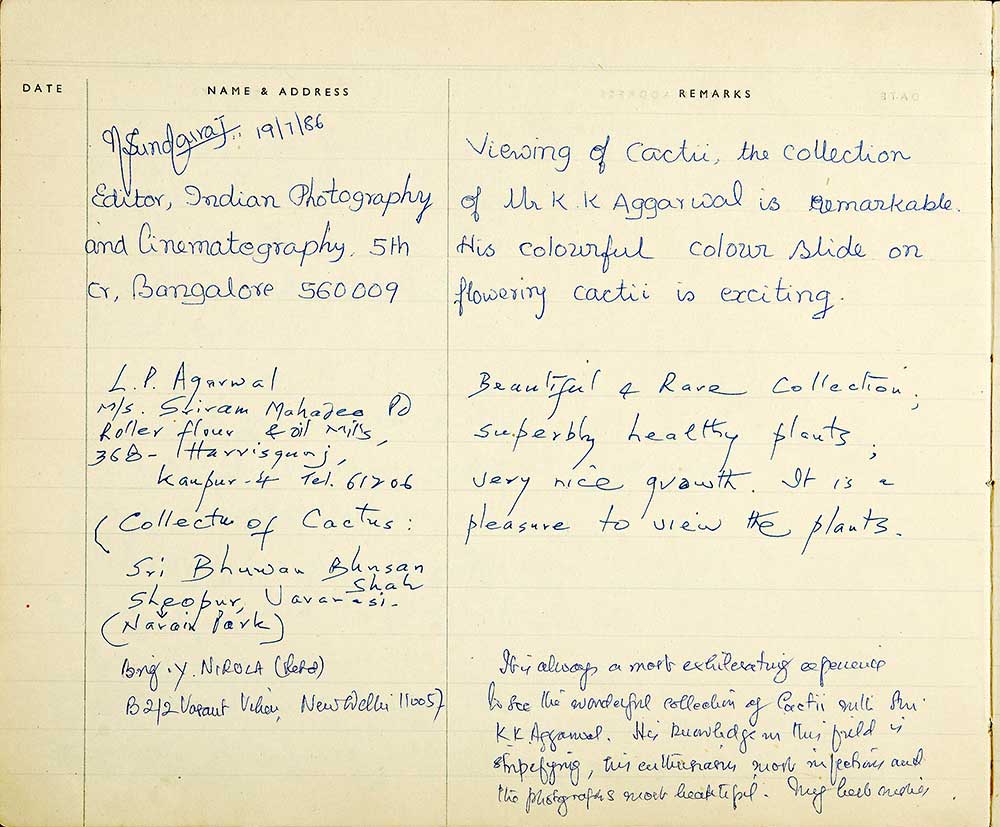 DATE
NAME & ADDRESS
REMARKS
19/7/86
Editor, Indian Photography
and Cinematography, 5th
Cr, Bangalore 560009
Viewing of Cactii, the collection
of Mr K. K Aggarwal is remarkable.
His colourful colour slide on
flowering cactii is exciting.
L. P. Agarwal
M/s. Sriram Mahadeo Pd
Roller flour & oil Mills,
368- Harrisgunj,
Kanpur-4 Tel. 61206
(Collector of Cactus:
Sri Bhuwan Bhusan
Shah
Sheopur, Varanasi-
(Narain Park)
Beautiful & Rare Collection;
superbly healthy plants;
very nice growth. It is a
pleasure to view the plants.
Brig. Y. NIROLA (Retd)
B2/2 Vasant Vihar, New Delhi 110057
It is always a most exhilerating experience
to see the wonderful collection of Cactii with Shri
K K Aggarwal. His knowledge in this field is
stupefying, his enthusiasm most infectious and
the photographs most beautiful. My best wishes